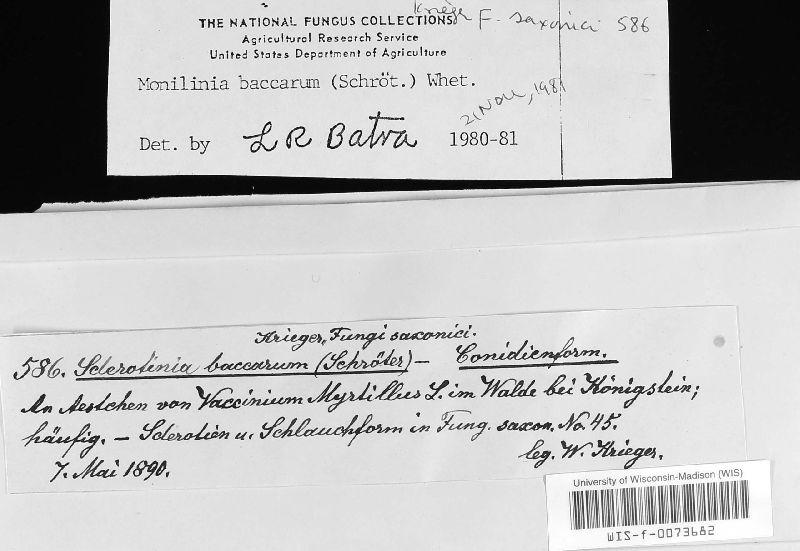 Krieger F. saxonici 586
THE NATIONAL FUNGUS COLLECTIONS
Agricultural Research Service
United States Department of Agriculture
Monilinia baccarum (Schröt.) Whet.
21 Nov, 1981
Det. by L R Batra 1980-81
Krieger, Fungi saxonici.
586. Sclerotinia baccarum (Schröter) – Conidienform.
An Aestchen von Vaccinium Myrtillus L. im Walde bei Königstein;
häufig. – Sclerotien u. Schlauchform in Fung. saxon. No. 45.
7. Mai 1890.
leg. W. Krieger.
University of Wisconsin-Madison (WIS)
WIS-f-0073682